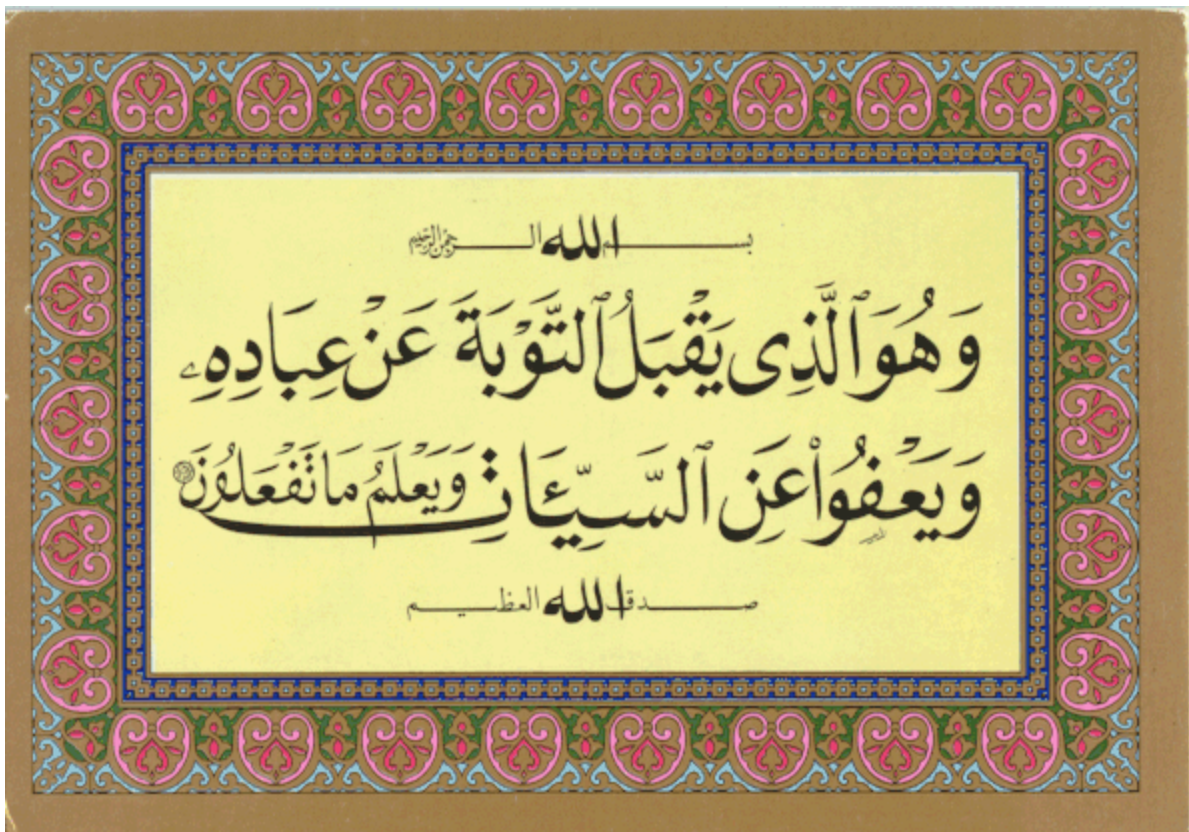 بسم الله الرحمن الرحيم
وَهُوَ ٱلَّذِى يَقْبَلُ ٱلتَّوْبَةَ عَنْ عِبَادِهِۦ
وَيَعْفُوا۟ عَنِ ٱلسَّيِّـَٔاتِ وَيَعْلَمُ مَا تَفْعَلُونَ
صدق الله العظيم